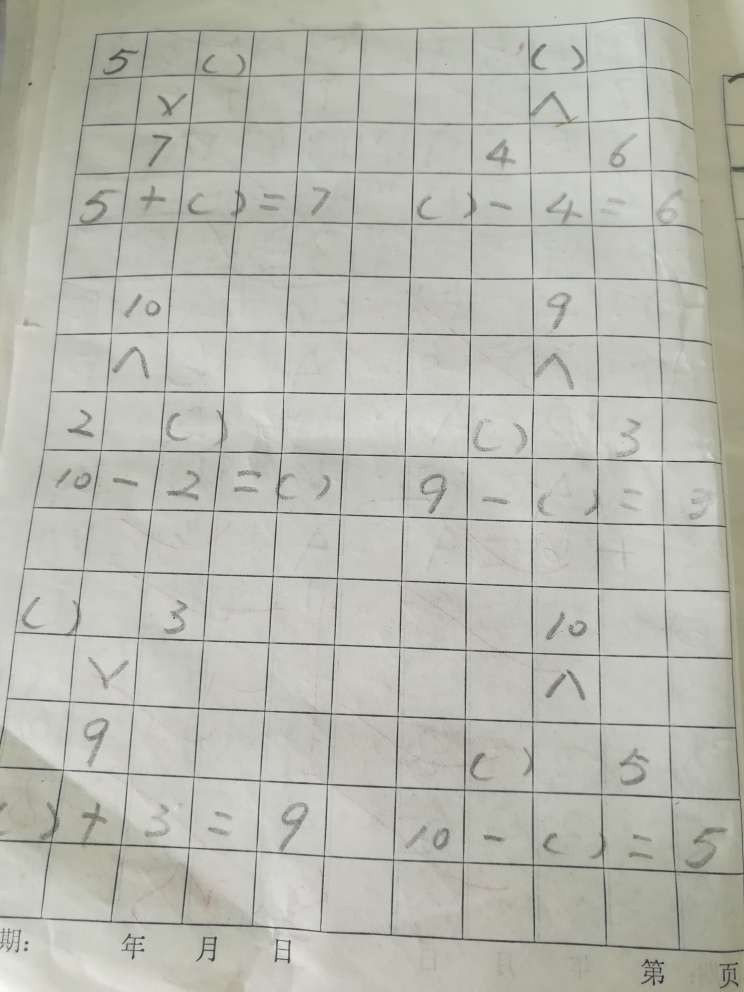 5 ( ) ( )
∨ ∧
7 4 6
5 + ( ) = 7 ( ) - 4 = 6
10 9
∧ ∧
2 ( ) ( ) 3
10 - 2 = ( ) 9 - ( ) = 3
( ) 3 10
∨ ∧
9 ( ) 5
( ) + 3 = 9 10 - ( ) = 5
期: 年 月 日
第 页